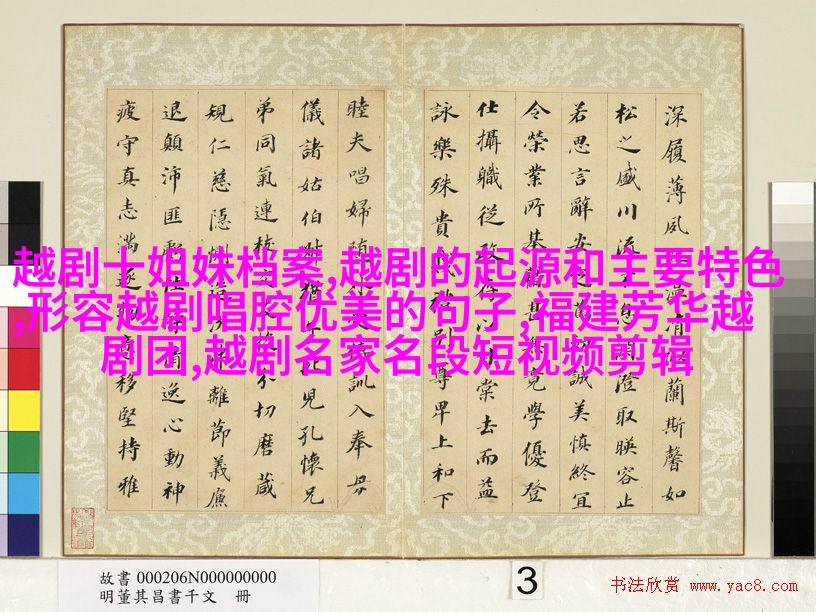 深履薄夙清似蘭斯馨如
松之盛川流不息淵澄取暎容止
若思言辭安定篤初誠美慎終宜
令榮業所基籍甚無竟學優登
仕攝職從政存以甘棠去而益
詠樂殊貴賤禮別尊卑上和下
睦夫唱婦隨外受傅訓入奉母
儀諸姑伯叔猶子比兒孔懷兄
弟同氣連枝交友投分切磨箴
規仁慈隱惻造次弗離節義廉
退顛沛匪虧性靜情逸心動神
疲守真志滿逐物意移堅持雅
越剧十姐妹档案,越剧的起源和主要特色
,形容越剧唱腔优美的句子,福建芳华越
剧团,越剧名家名段短视频剪辑
故書 000206N000000000
明董其昌書千文 冊
3
书法欣赏 www.yac8.com